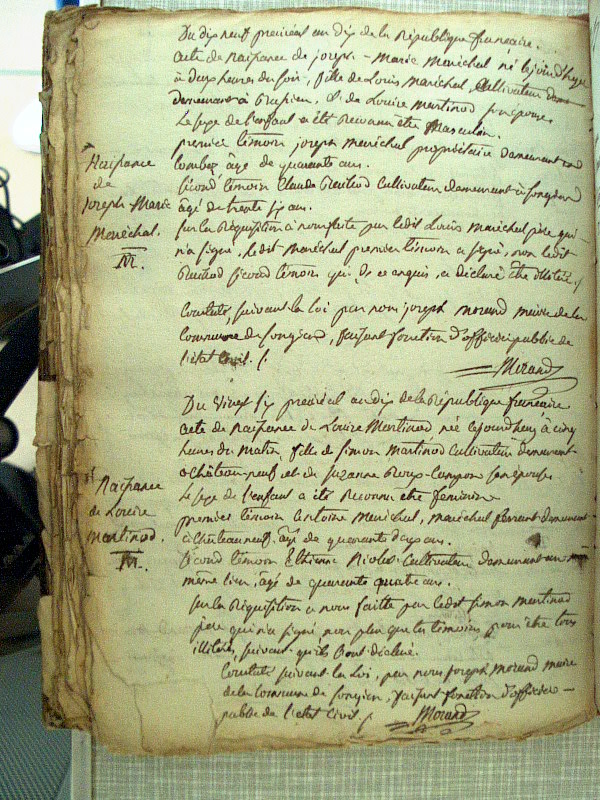 Du dix neuf prairéal an dix de la République française.
Acte de Naissance de joseph-Marie Maréchal né lejourd'huy
à deux heures du soir, fils de Louis Maréchal, Cultivateur
demeurant à Ruphieu, & de Louise Martinod son épouse
Le sexe de l'enfant a été Reconnu être Masculin.
premier témoin joseph maréchal propriétaire demeurant
age de quarante ans.
Second témoin Claude Cultivateur demeurant à Songieu
âgé de trente ans.
Sur la Réquisition à nous faite par ledit Louis maréchal père qui
n'a signé, ledit maréchal premier témoin a signé, non ledit
second témoin qui, de ce enquis, a déclaré être illitéré ./
Naissance
de
joseph Marie
Maréchal.
M.
Constaté, suivant la loi par nous joseph morand maire de la
Commune de Songieu, faisant fonction d'officier public de
l'état civil. /.
Morand
Du vingt six prairéal an dix de la République française
acte de Naissance de Louise Martinod née cejourdhuy à cinq
heures du matin, fille de simon martinod Cultivateur demeurant
à Château-neuf et de suzanne Roux- son épouse
Le sexe de l'enfant a été Reconnu être féminin
premier témoin antoine maréchal, maréchal ferrant demeurant
à Châteauneuf, agé de quarante ans.
second témoin Ethienne Nicolas Cultivateur demeurant au
même lieu, agé de quarante quatre ans.
Naissance
de Louise
martinod.
M.
sur la Réquisition a nous faitte par ledit simon martinod
père qui n'a signé non plus que les témoins pour être tous
illitérés, suivant qu'ils l'ont déclaré.
Constaté suivant la Loi, par nous joseph morand maire
de la Commune de songieu, faisant fonction d'officier
public de l'état civil /.
Morand